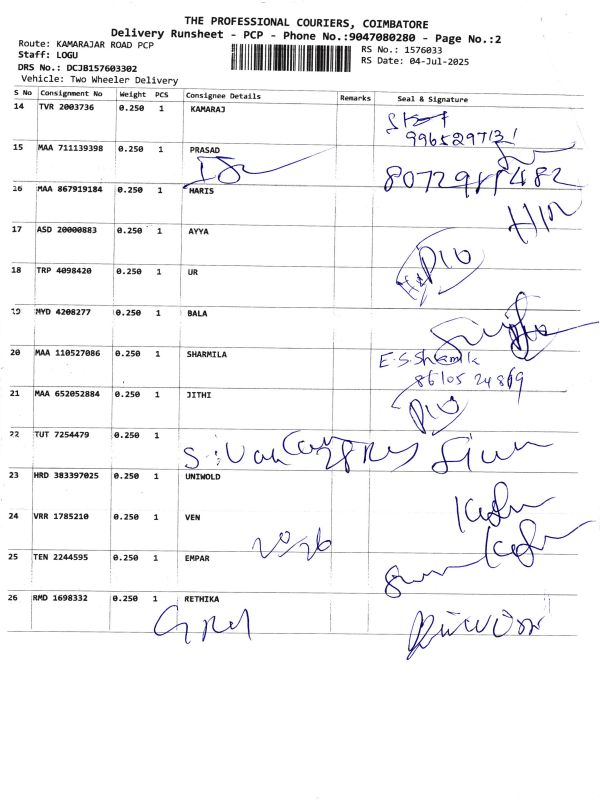 THE PROFESSIONAL COURIERS, COIMBATORE
Delivery Runsheet - PCP - Phone No.:9047080280 - Page No.:2
Route: KAMARAJAR ROAD PCP
Staff: LOGU
DRS No.: DCJB157603302
Vehicle: Two Wheeler Delivery
RS No.: 1576033
RS Date: 04-Jul-2025
S No Consignment No Weight PCS Consignee Details Remarks Seal & Signature
14 TVR 2003736 0.250 1 KAMARAJ
9965297131
15 MAA 711139398 0.250 1 PRASAD
16 MAA 867919184 0.250 1 HARIS
17 ASD 20000883 0.250 1 AYYA
18 TRP 4098420 0.250 1 UR
19 MYD 4208277 0.250 1 BALA
20 MAA 110527086 0.250 1 SHARMILA E.S.Sharmila
8610524869
21 MAA 652052884 0.250 1 JITHI
22 TUT 7254479 0.250 1
23 HRD 383397025 0.250 1 UNIWOLD
24 VRR 1785210 0.250 1 VEN
25 TEN 2244595 0.250 1 EMPAR
26 RMD 1698332 0.250 1 RETHIKA